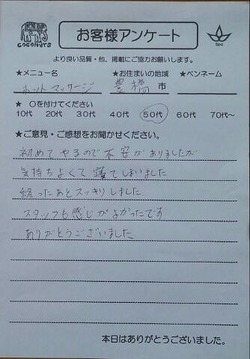 COCONUTS
お客様アンケート
Spa
より良い品質・他、掲載にご協力お願いします。
★メニュー名 ★お住まいの地域 ★ペンネーム
ホットマッサージ 豊橋市
★ 〇を付けてください
10代 20代 30代 40代 50代 60代 70代〜
★ご意見・ご感想をお聞かせください。
初めてやるので不安がありましたが
気持ちよくて寝てしまいました
終ったあとスッキリしました
スタッフも感じがよかったです
ありがとうございました
本日はありがとうございます。